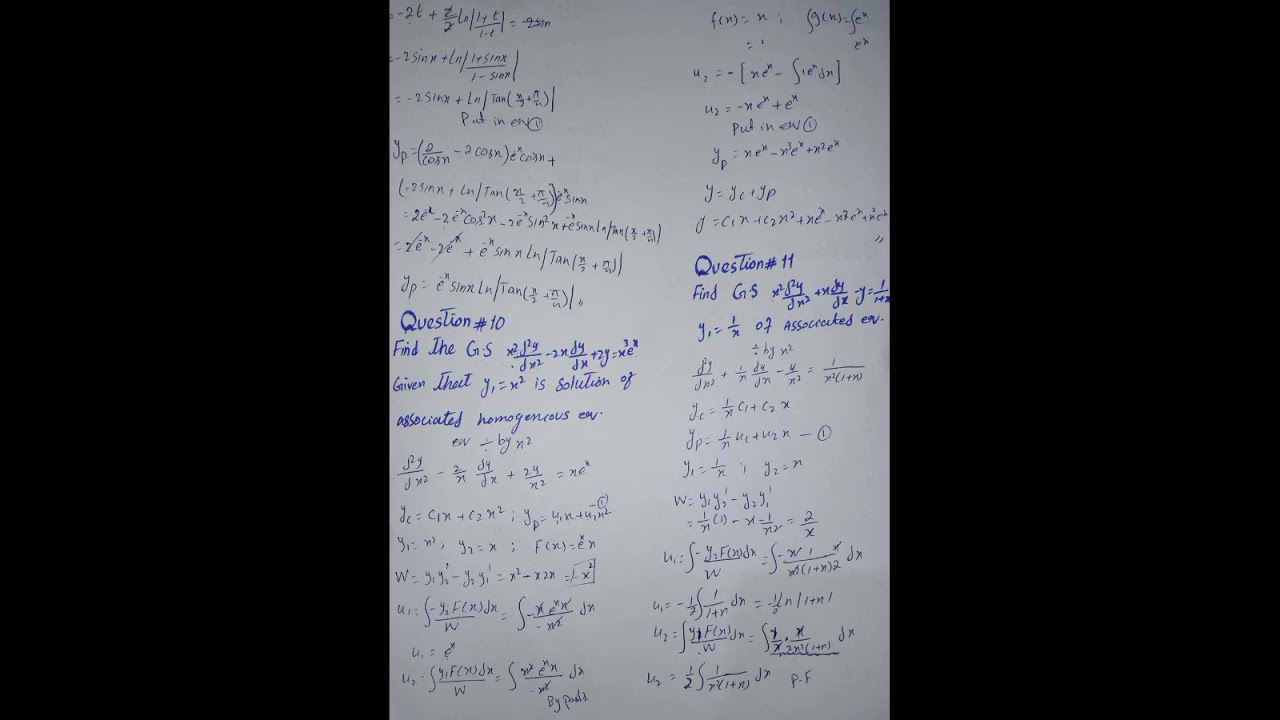 = -2t + 2/2 ln|1+t/1-t| = 2sin
= -2sinx + ln|1+sinx/1-sinx|
= -2sinx + ln|Tan(x/2 + π/4)|
Put in ev ①
yp = (2/cosx - 2cosx) e^-x cosx +
(-2sinx + ln|Tan(x/2 + π/4)|) e^-x sinx
= 2e^-x - 2e^-x cos²x - 2e^-x sin²x + e^-x sinx ln|Tan(x/2 + π/4)|
= 2e^-x - 2e^-x + e^-x sinx ln|Tan(x/2 + π/4)|
yp = e^-x sinx ln|Tan(x/2 + π/4)| "
Question #10
Find the G.S x² d²y/dx² - 2x dy/dx + 2y = x³e^x
Given that y₁ = x² is solution of
associated homogenious ev.
ev ÷ by x²
d²y/dx² - 2/x dy/dx + 2y/x² = xe^x
yc = c₁x + c₂x² ; yp = u₁x + u₂x² - ①
y₁ = x² ; y₂ = x ; F(x) = e^x x
W = y₁y₂' - y₂y₁' = x² - x2x = -x²
u₁ = ∫ -y₂F(x)dx/W = ∫ -x e^x x/-x² dx
u₁ = e^x
u₂ = ∫ y₁F(x)dx/W = ∫ x² e^x x/-x² dx
By parts
f(x) = x ; ∫g(x) = ∫e^x
= 1 e^x
u₂ = -[xe^x - ∫1e^x dx]
u₂ = -xe^x + e^x
Put in ev ①
yp = xe^x - x³e^x + x²e^x
y = yc + yp
y = c₁x + c₂x² + xe^x - x³e^x + x²e^x "
Question #11
Find G.S x² d²y/dx² + x dy/dx - y = 1/1+x
y₁ = 1/x of Associated ev.
÷ by x²
d²y/dx² + 1/x dy/dx - y/x² = 1/x²(1+x)
yc = 1/x c₁ + c₂ x
yp = 1/x u₁ + u₂x - ①
y₁ = 1/x ; y₂ = x
W = y₁y₂' - y₂y₁'
= 1/x (1) - x -1/x² = 2/x
u₁ = ∫ -y₂F(x)dx/W = ∫ -x 1 x/x²(1+x)2 dx
u₁ = -1/2 ∫ 1/1+x dx = -1/2 ln|1+x|
u₂ = ∫ y₁F(x)dx/W = ∫ 1/x · x/2x²(1+x) dx
u₂ = 1/2 ∫ 1/x²(1+x) dx P.F